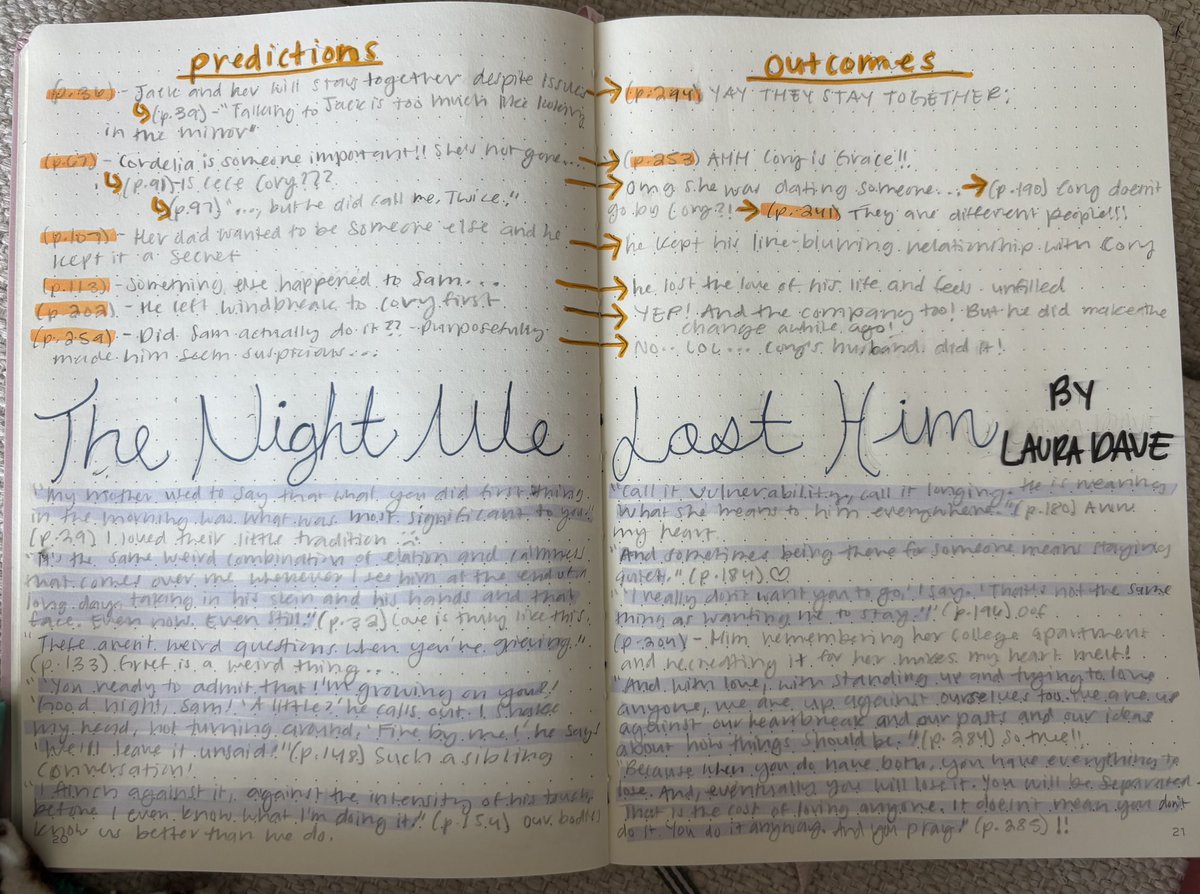 predictions
(p.36) - Jack and her will stay together despite issues →
↳(p.39) - "Talking to Jack is too much like looking
in the mirror"
(p.67) - Cordelia is someone important!! She's not gone... →
↳(p.91) - Is Cece Cory??? →
↳(p.97) "..., but he did call me. Twice."
(p.107) - Her dad wanted to be someone else and he →
kept it a secret
(p.113) - Something else happened to Sam... →
(p.202) - He left windbreak to Cory first →
(p.259) - Did Sam actually do it?? - purposefully →
made him seem suspicious...
outcomes
(p.294) YAY THEY STAY TOGETHER!
(p.253) AHH Cory is Grace!!
omg she was dating someone... → (p.190) Cory doesn't
go by Cory?! → (p.241) They are different people!!!
he kept his line-blurring relationship with Cory
he lost the love of his life and feels unfilled
YEP! And the company too! But he did make the
change awhile ago!
No.. LOL... Cory's husband did it!
The Night We Lost Him
BY
LAURA DAVE
"My mother used to say that what you did first thing
in the morning was what was most significant to you."
(p.29) I loved their little tradition
"It's the same weird combination of elation and calmness
that comes over me whenever I see him at the end of a
long day, taking in his skin and his hands and that
face. Even now. Even still." (p.32) Love is truly like this.
"There aren't weird questions when you're grieving."
(p.133) Grief is a weird thing...
"'You ready to admit that I'm growing on you?'
'Good night, Sam!' 'A little?' he calls out. I shake
my head, not turning around. 'Fine by me!' he says
'We'll leave it unsaid!'" (p.148) Such a sibling
conversation!
"I flinch against it, against the intensity of his touch,
before I even know what I'm doing it." (p.154) our bodies
know us better than we do.
20
"Call it vulnerability, call it longing. He is meaning
what she means to him everywhere." (p.180) Aww
my heart
"And sometimes being there for someone means staying
quiet." (p.184) ♡
"'I really don't want you to go,' I say. 'That's not the same
thing as wanting me to stay.'" (p.194) oof
(p.204) - Him remembering her college apartment
and recreating it for her makes my heart melt!
"And with love, with standing up and trying to love
anyone, we are up against ourselves too. We are up
against our heartbreak and our pasts and our ideas
about how things should be." (p.284) So true!!
"Because when you do have both, you have everything to
lose. And, eventually you will lose it. You will be separated.
That is the cost of loving anyone. It doesn't mean you don't
do it. You do it anyway. And you pray." (p.285) !!
21